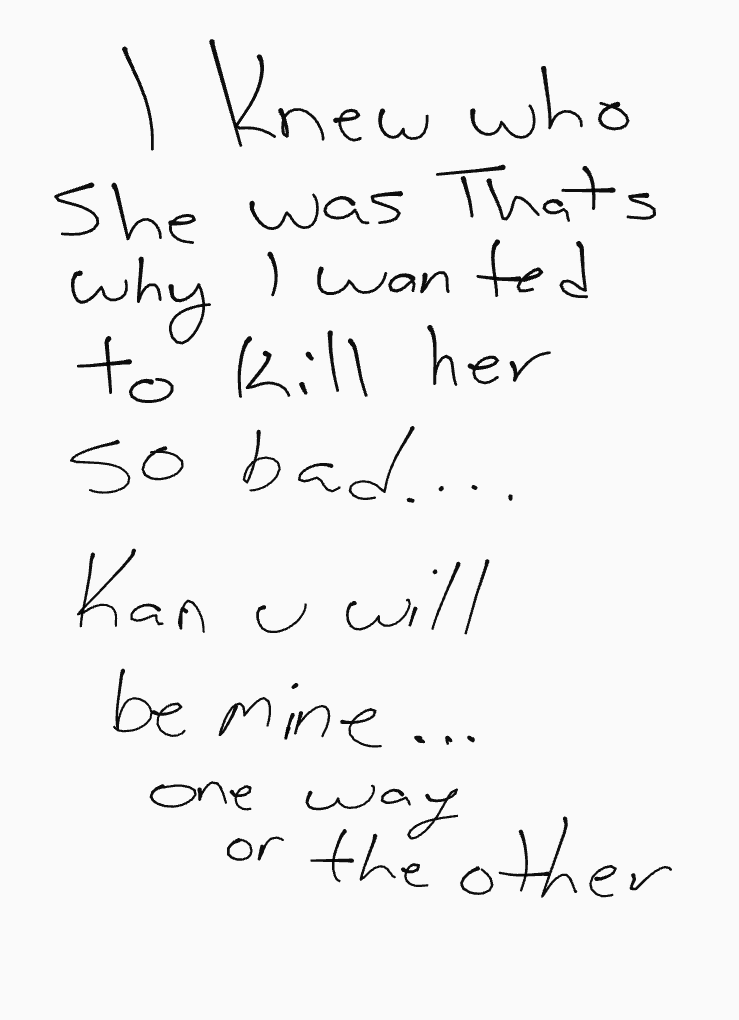 I Knew who
She was Thats
why I wanted
to Kill her
so bad....
Kan u will
be mine...
one way
or the other